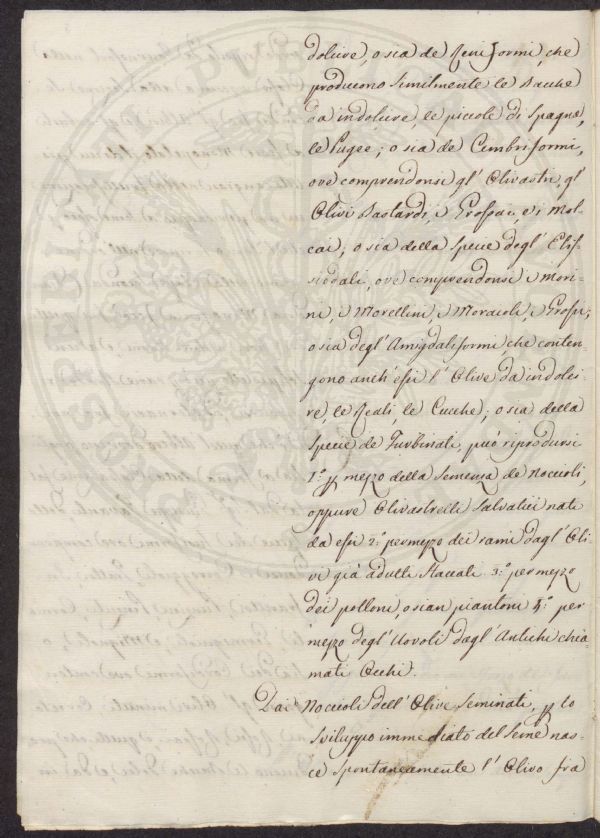 dolire, o sia de Reniformi, che
producono similmente le Bacche
da indolire, le piccole di Spagna,
le Pugee; o sia de Cimbriformi,
ove comprendonsi gl' Olivastri, gl'
Olivi Bastardi, i Grossai, e i Mol-
cai; o sia della Specie degl' Elis-
soidali, ove comprendonsi i Mori-
ni, i Morellini, i Moraioli, i Grossi;
o sia degl' Amigdaliformi, che conten-
gono anch' essi l' Olive da indolci-
re, le Reali, le Cucche; o sia della
Specie de Turbinati, può riprodursi
1.º p mezzo della Semenza de Noccioli,
oppure Olivastrelli Salvatici nati
da essi 2.º per mezzo dei rami dagl' Oli-
vi già adulti staccati 3.º per mezzo
dei polloni, o sian piantoni 4.º per
mezzo degl' Uovoli dagl' Antichi chia-
mati Occhi.
Dai Noccioli dell' Olive Seminati, p lo
Sviluppo immediato del Seme na-
sce spontaneamente l' Olivo fra